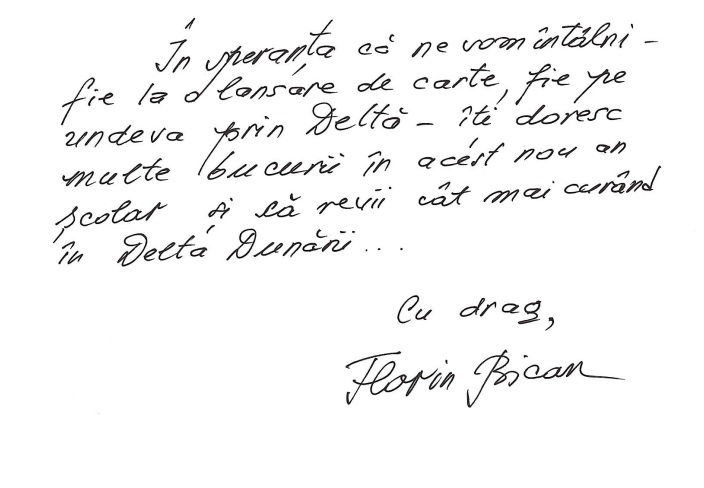 În speranța că ne vom întâlni -
fie la o lansare de carte, fie pe
undeva prin Deltă - îți doresc
multe bucurii în acest nou an
școlar și să revii cât mai curând
în Delta Dunării...
Cu drag,
Florin Bican